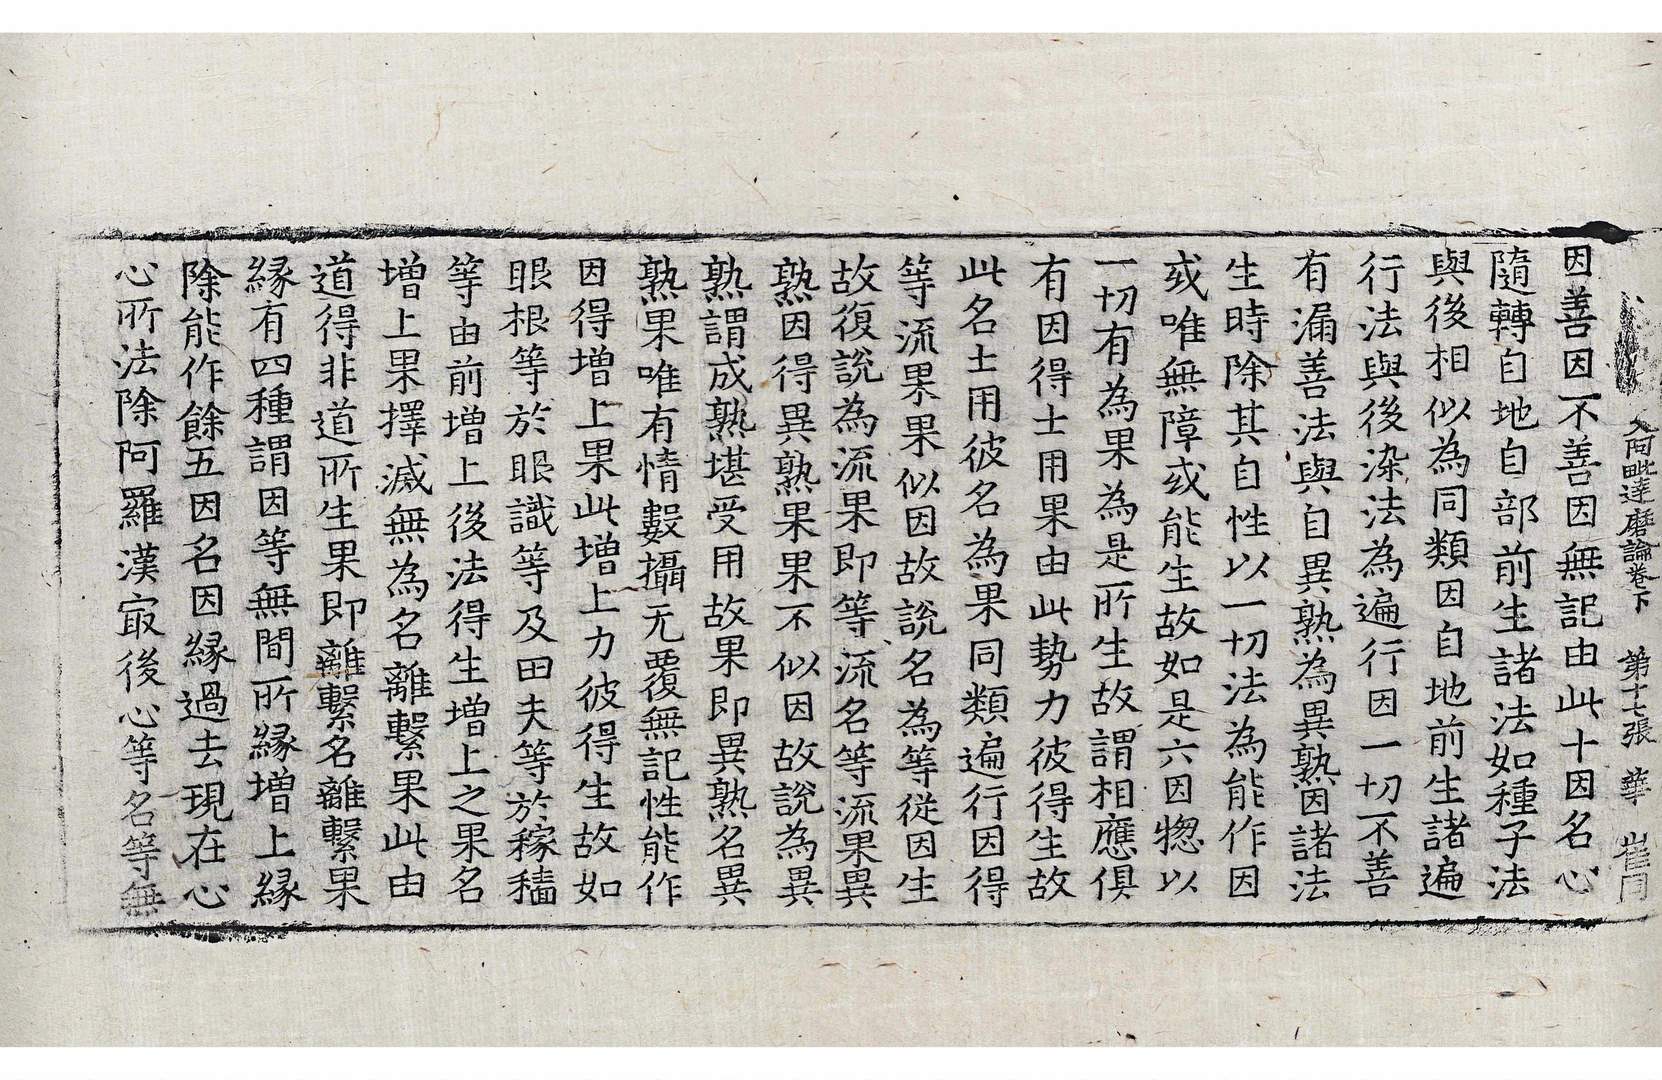 入阿毗達磨論卷下　第十七張　華　崔同
因善因不善因無記由此十因名心
隨轉自地自部前生諸法如種子法
與後相似為同類因自地前生諸遍
行法與後染法為遍行因一切不善
有漏善法與自異熟為異熟因諸法
生時除其自性以一切法為能作因
或唯無障或能生故如是六因惣以
一切有為果為是所生故謂相應俱
有因得士用果由此勢力彼得生故
此名士用彼名為果同類遍行因得
等流果果似因故說名為等從因生
故復說為流果即等流名等流果異
熟因得異熟果果不似因故說為異
熟謂成熟堪受用故果即異熟名異
熟果唯有情數攝无覆無記性能作
因得增上果此增上力彼得生故如
眼根等於眼識等及田夫等於稼穡
等由前增上後法得生增上之果名
增上果擇滅無為名離繫果此由
道得非道所生果即離繫名離繫果
緣有四種謂因等無間所緣增上緣
除能作餘五因名因緣過去現在心
心所法除阿羅漢冣後心等名等無